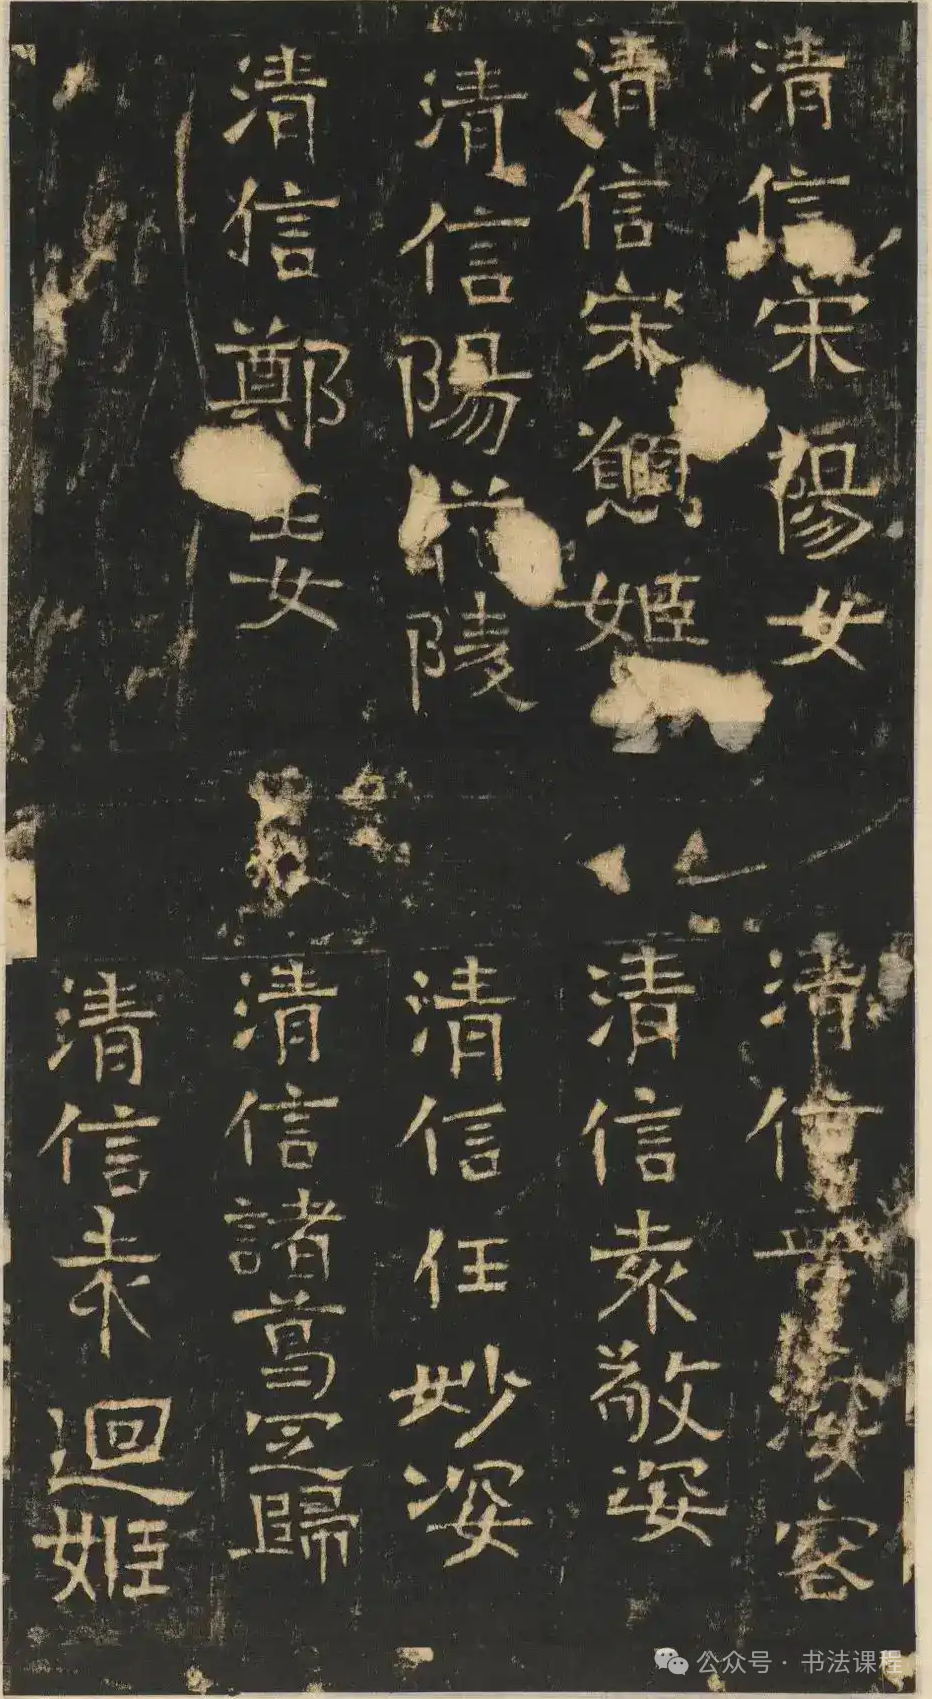 清信宋陽女
清信宋愍姬
清信陽陵
清信鄭女
清信姿客
清信袁敬姿
清信任妙姿
清信諸葛定歸
清信袁迴姬
公众号·书法课程